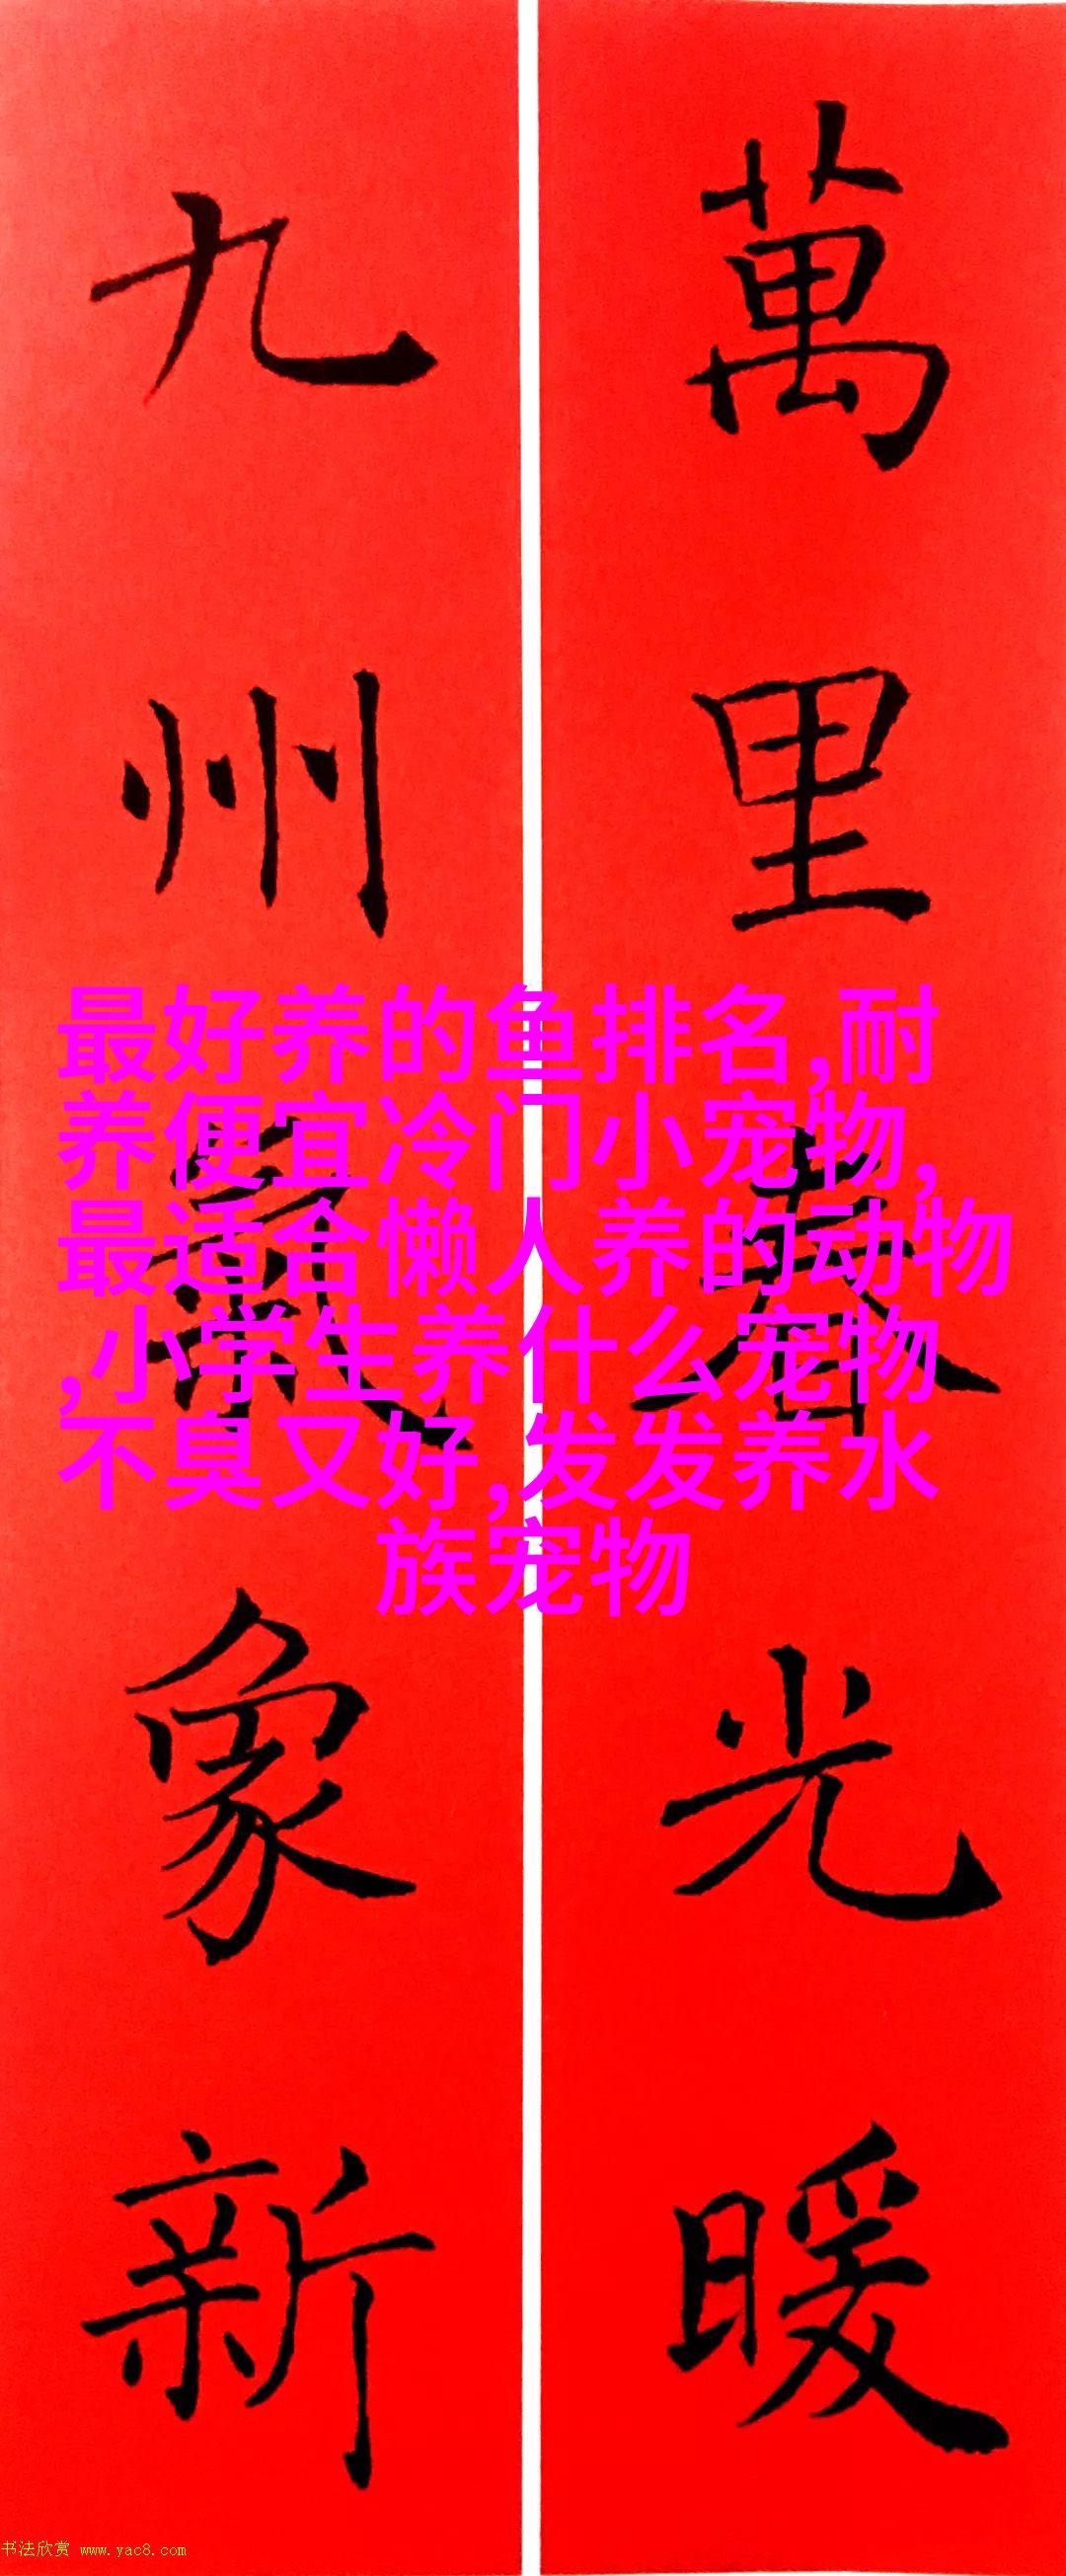 萬里春光暖
九州氣象新
最好养的鱼排名,耐
养便宜冷门小宠物,
最适合懒人养的动物
,小学生养什么宠物
不臭又好,发发养水
族宠物
书法欣赏 www.yac8.com